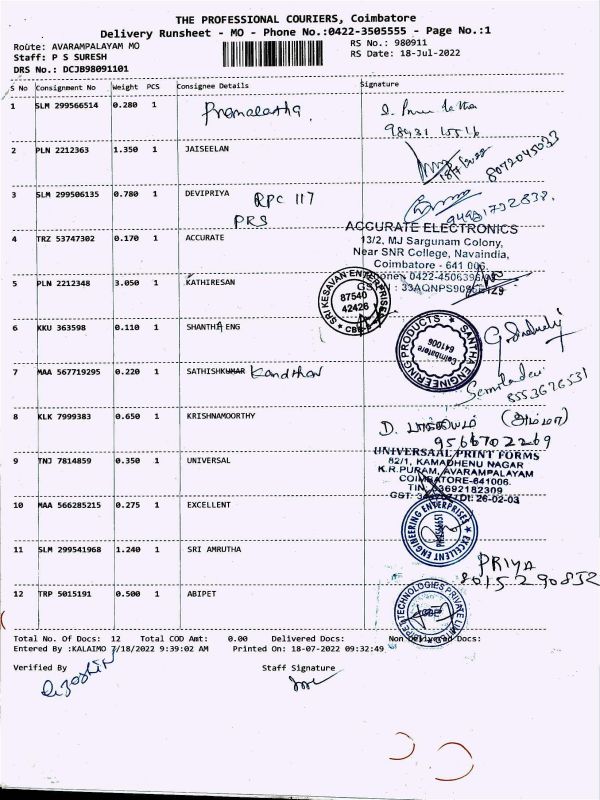 THE PROFESSIONAL COURIERS, Coimbatore
Delivery Runsheet - MO - Phone No.:0422-3505555 - Page No.:1
Route: AVARAMPALAYAM MO
RS No.: 980911
Staff: P S SURESH
RS Date: 18-Jul-2022
DRS No.: DCJB98091101
S No Consignment No Weight PCS Consignee Details Signature
1 SLM 299566514 0.280 1 Premalatha
2 PLN 2212363 1.350 1 JAISEELAN
18/7/2022 8072045033
3 SLM 299506135 0.780 1 DEVIPRIYA RPC 117
PRS
94981792838.
4 TRZ 53747302 0.170 1 ACCURATE
ACCURATE ELECTRONICS
13/2, MJ Sargunam Colony,
Near SNR College, Navaindia,
Coimbatore - 641 006.
5 PLN 2212348 3.050 1 KATHIRESAN
SRI KESAVAN ENTERPRISES
87540
42426
CBE
6 KKU 363598 0.110 1 SHANTHA ENG
SANTHA ENGINEERING PRODUCTS
Coimbatore
641006
7 MAA 567719295 0.220 1 SATHISHKUMAR Kandhan
8553676531
8 KLK 7999383 0.650 1 KRISHNAMOORTHY
D. பாக்கியம் (அம்மா)
9566702269
9 TNJ 7814859 0.350 1 UNIVERSAL
UNIVERSAAL PRINT FORMS
82/1, KAMADHENU NAGAR
K.R.PURAM, AVARAMPALAYAM
COIMBATORE-641006.
10 MAA 566285215 0.275 1 EXCELLENT
EXCELLENT ENGINEERING ENTERPRISES
11 SLM 299541968 1.240 1 SRI AMRUTHA
PRIYA
8015290852
12 TRP 5015191 0.500 1 ABIPET
TECHNOLOGIES PRIVATE LIMITED
CBE
Total No. Of Docs: 12 Total COD Amt: 0.00 Delivered Docs: Non Delivered Docs:
Entered By :KALAIMO 7/18/2022 9:39:02 AM Printed On: 18-07-2022 09:32:49
Verified By Staff Signature